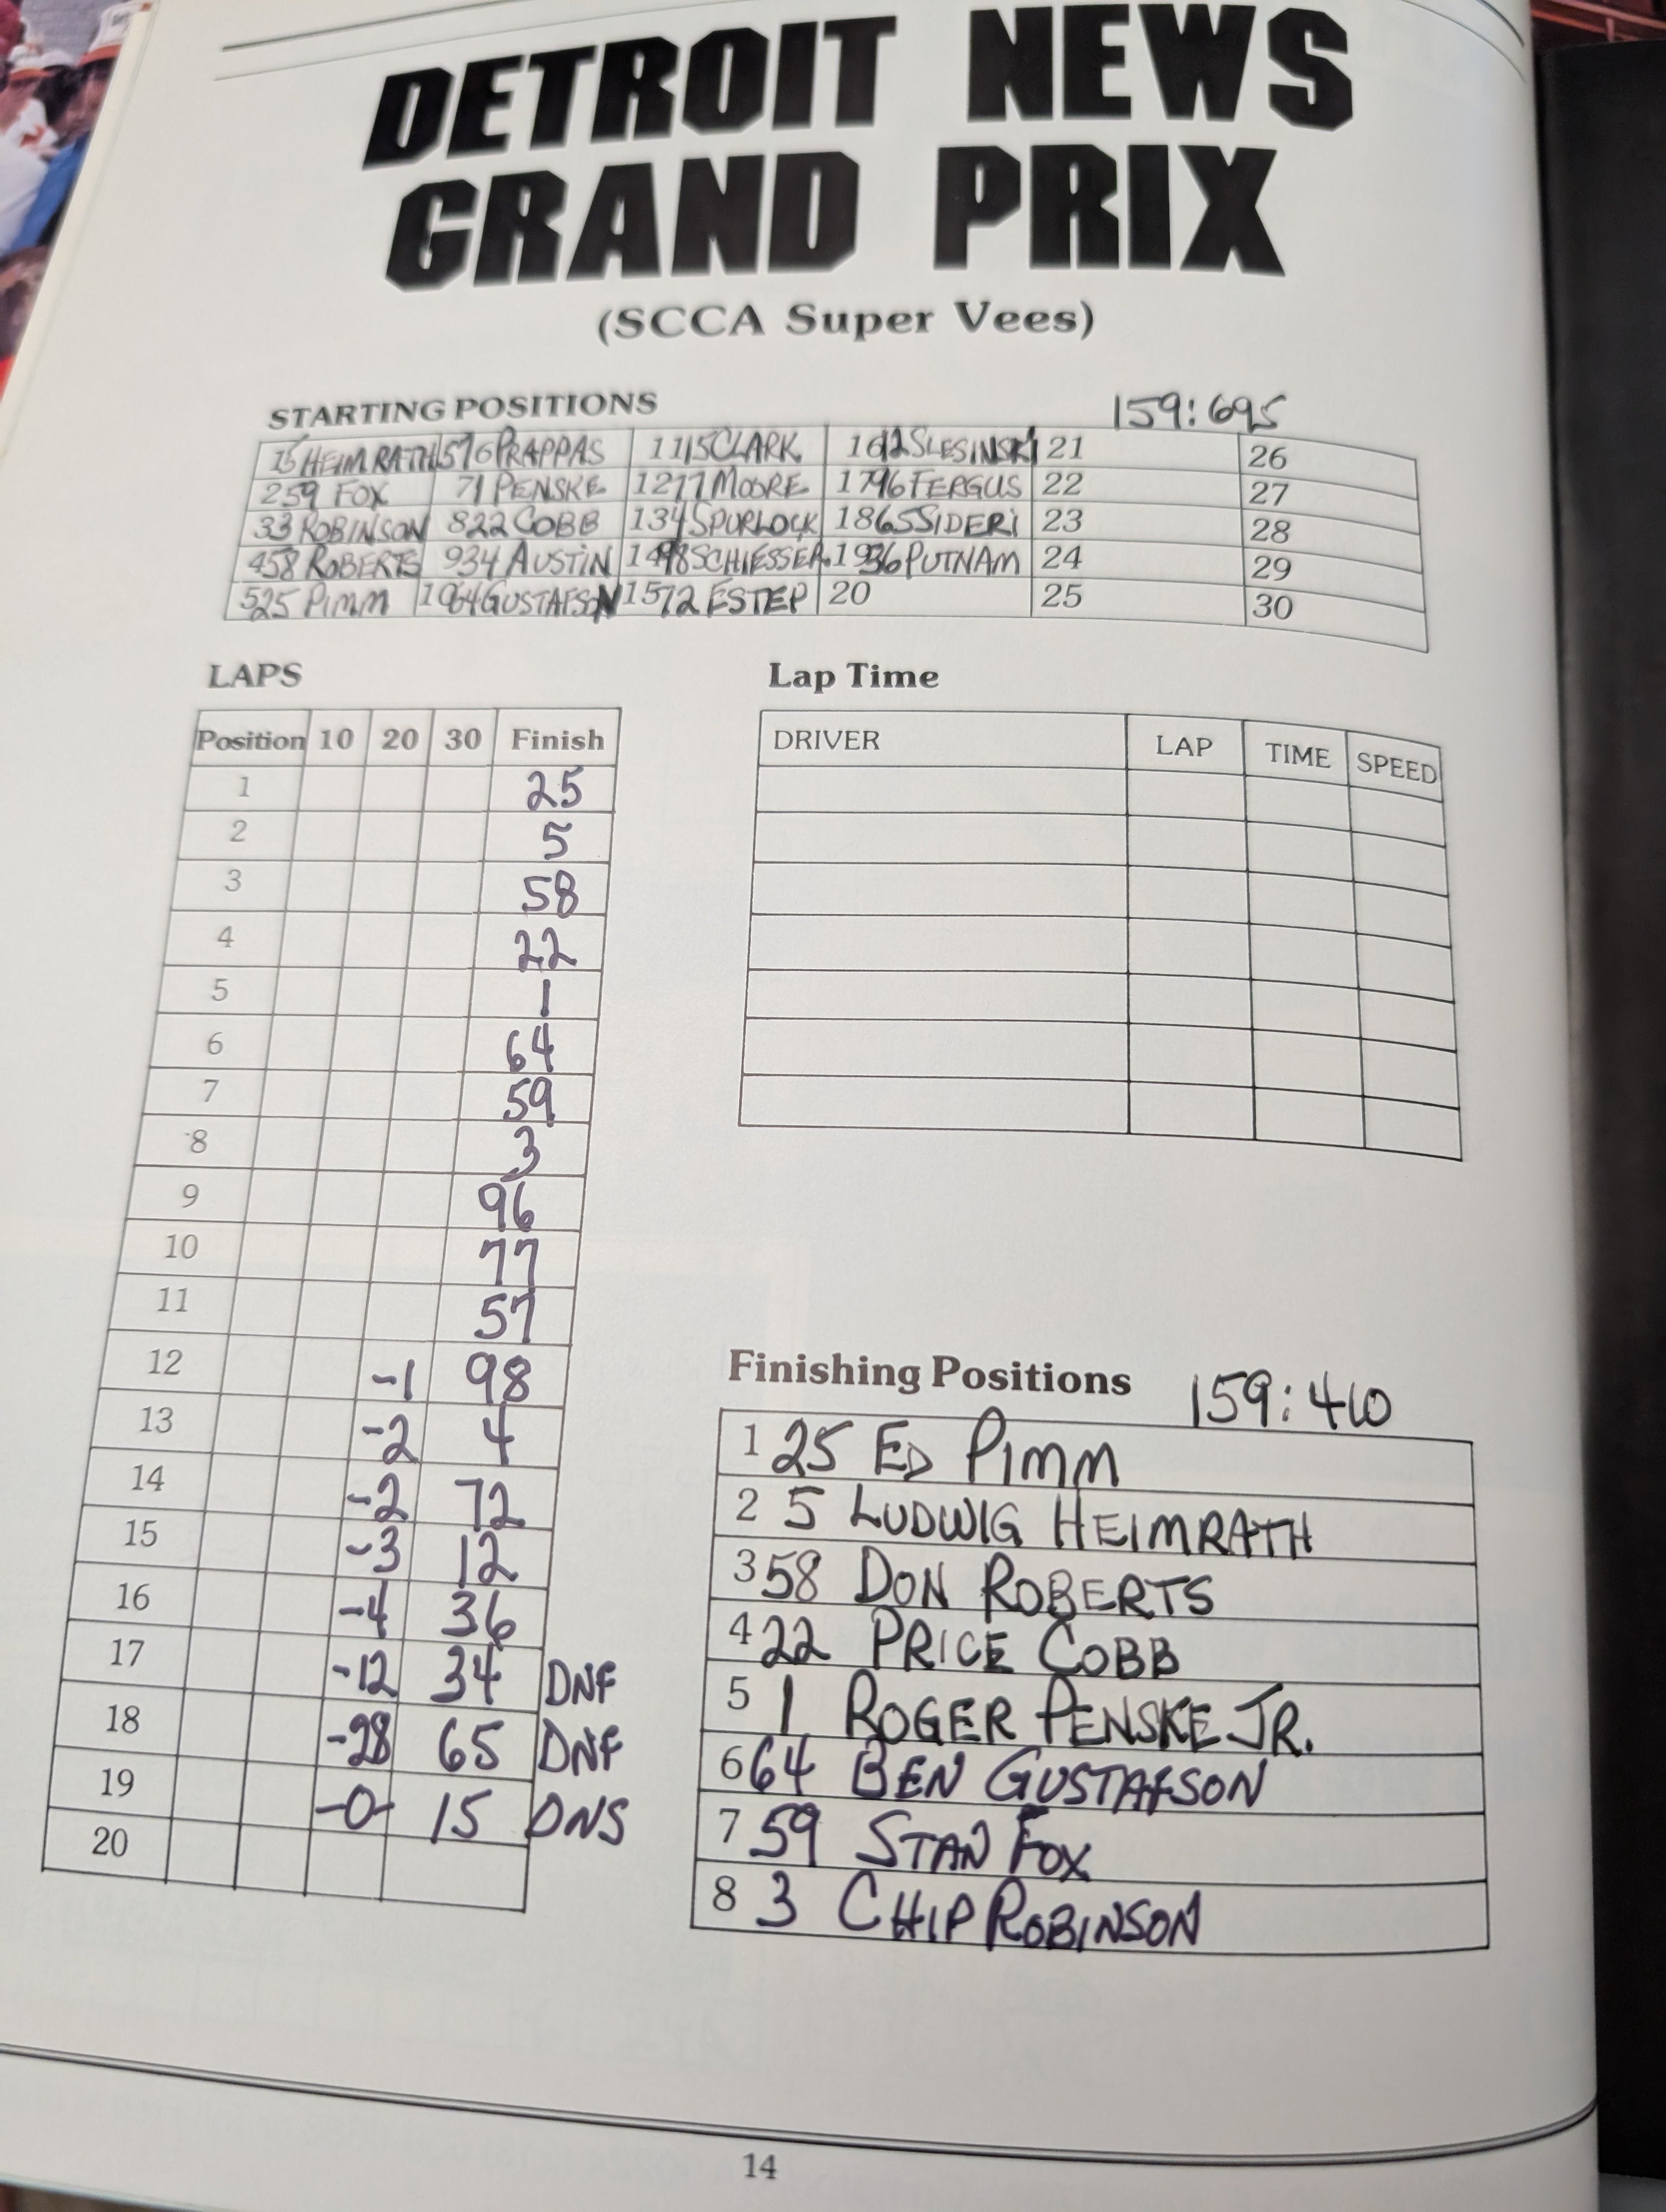 DETROIT NEWS
GRAND PRIX
(SCCA Super Vees)
STARTING POSITIONS 159:695
1 5 HEIMRATH 6 PRAPPAS 11 15 CLARK 16 12 SLESINSKI 21 26
2 59 FOX 7 1 PENSKE 12 77 MOORE 17 96 FERGUS 22 27
3 3 ROBINSON 8 22 COBB 13 4 SPURLOCK 18 65 SIDERI 23 28
4 58 ROBERTS 9 34 AUSTIN 14 98 SCHIESSER 19 36 PUTNAM 24 29
5 25 PIMM 10 64 GUSTAFSON 15 72 ESTEP 20 25 30
LAPS
Position 10 20 30 Finish
1 25
2 5
3 58
4 22
5 1
6 64
7 59
8 3
9 96
10 77
11 57
12 -1 98
13 -2 4
14 -2 72
15 -3 12
16 -4 36
17 -12 34 DNF
18 -28 65 DNF
19 -0- 15 DNS
20
Lap Time
DRIVER LAP TIME SPEED
Finishing Positions 159:410
1 25 ED PIMM
2 5 LUDWIG HEIMRATH
3 58 DON ROBERTS
4 22 PRICE COBB
5 1 ROGER PENSKE JR.
6 64 BEN GUSTAFSON
7 59 STAN FOX
8 3 CHIP ROBINSON
14